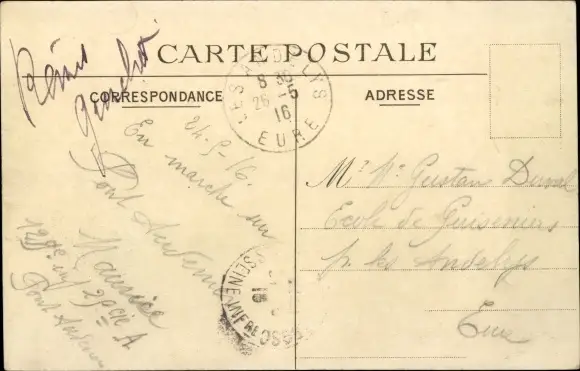 CARTE POSTALE
CORRESPONDANCE
ADRESSE
LES ANDELYS
8 30
26 -5
16
EURE
24-5-16.
En marche sur
Pont Audemer
Maurice
129e inf 29 cie A
Pont Audemer
SEINE INFRE
Mr Gustave Duval
Ecole de Guiseniers
pr les Andelys
Eure